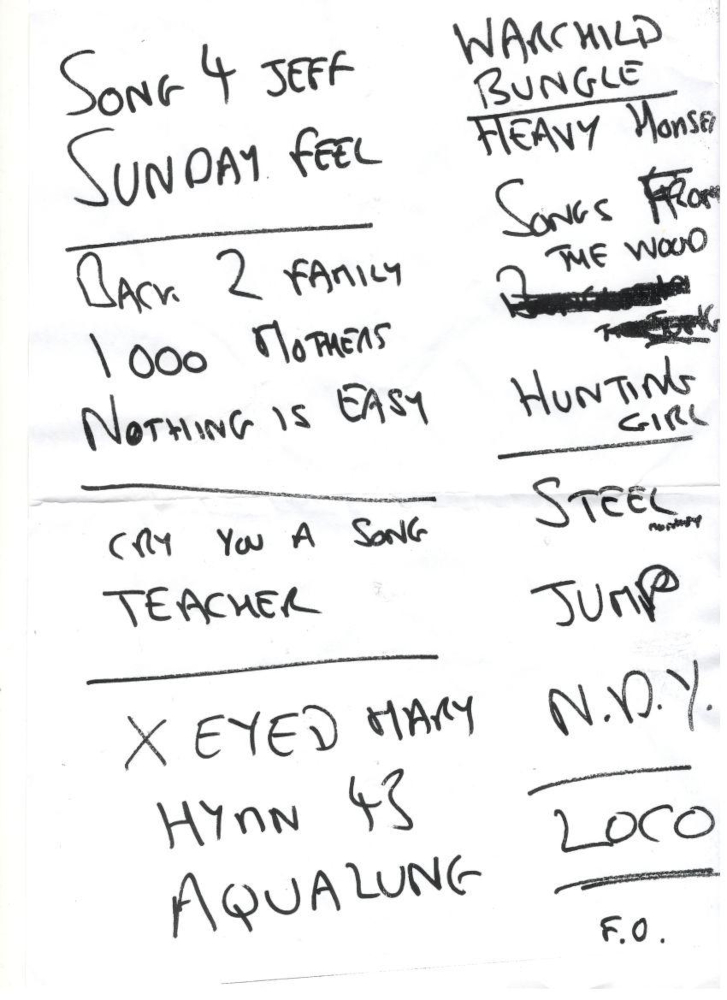 SONG 4 JEFF
SUNDAY FEEL
BACK 2 FAMILY
1000 MOTHERS
NOTHING IS EASY
CRY YOU A SONG
TEACHER
X EYED MARY
HYMN 43
AQUALUNG
WARCHILD
BUNGLE
HEAVY HORSE
SONGS FROM
THE WOOD
HUNTING
GIRL
STEEL
MONKEY
JUMP
N.D.Y.
LOCO
F.O.